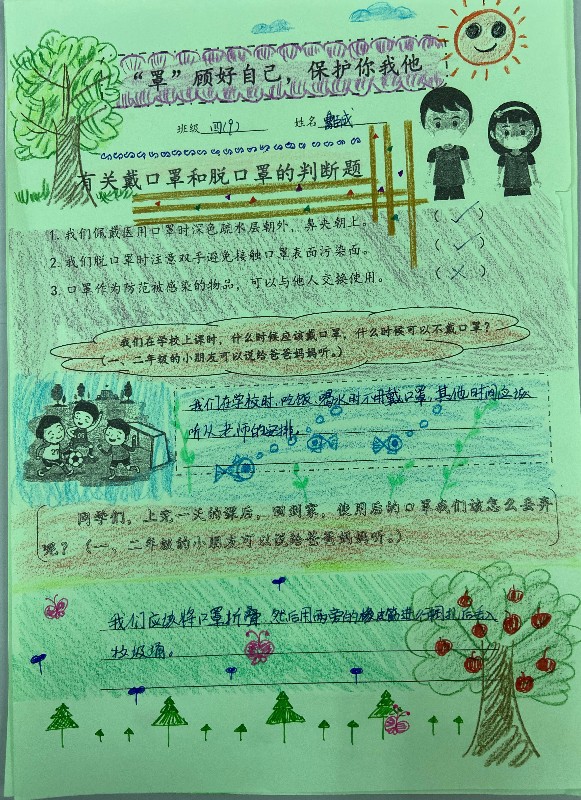 “罩”顾好自己，保护你我他
班级 四(9) 姓名
有关戴口罩和脱口罩的判断题
1. 我们佩戴医用口罩时深色疏水层朝外，鼻夹朝上。 (✓)
2. 我们脱口罩时注意双手避免接触口罩表面污染面。 (✓)
3. 口罩作为防范被感染的物品，可以与他人交换使用。 (×)
我们在学校上课时，什么时候应该戴口罩，什么时候可以不戴口罩？
（一、二年级的小朋友可以说给爸爸妈妈听。）
我们在学校时，吃饭、喝水时不用戴口罩，其他时间应该
听从老师的安排。
同学们，上完一天的课后，回到家，使用后的口罩我们该怎么丢弃
呢？（一、二年级的小朋友可以说给爸爸妈妈听。）
我们应该将口罩折叠，然后用两旁的橡皮筋进行捆扎后丢入
垃圾桶。